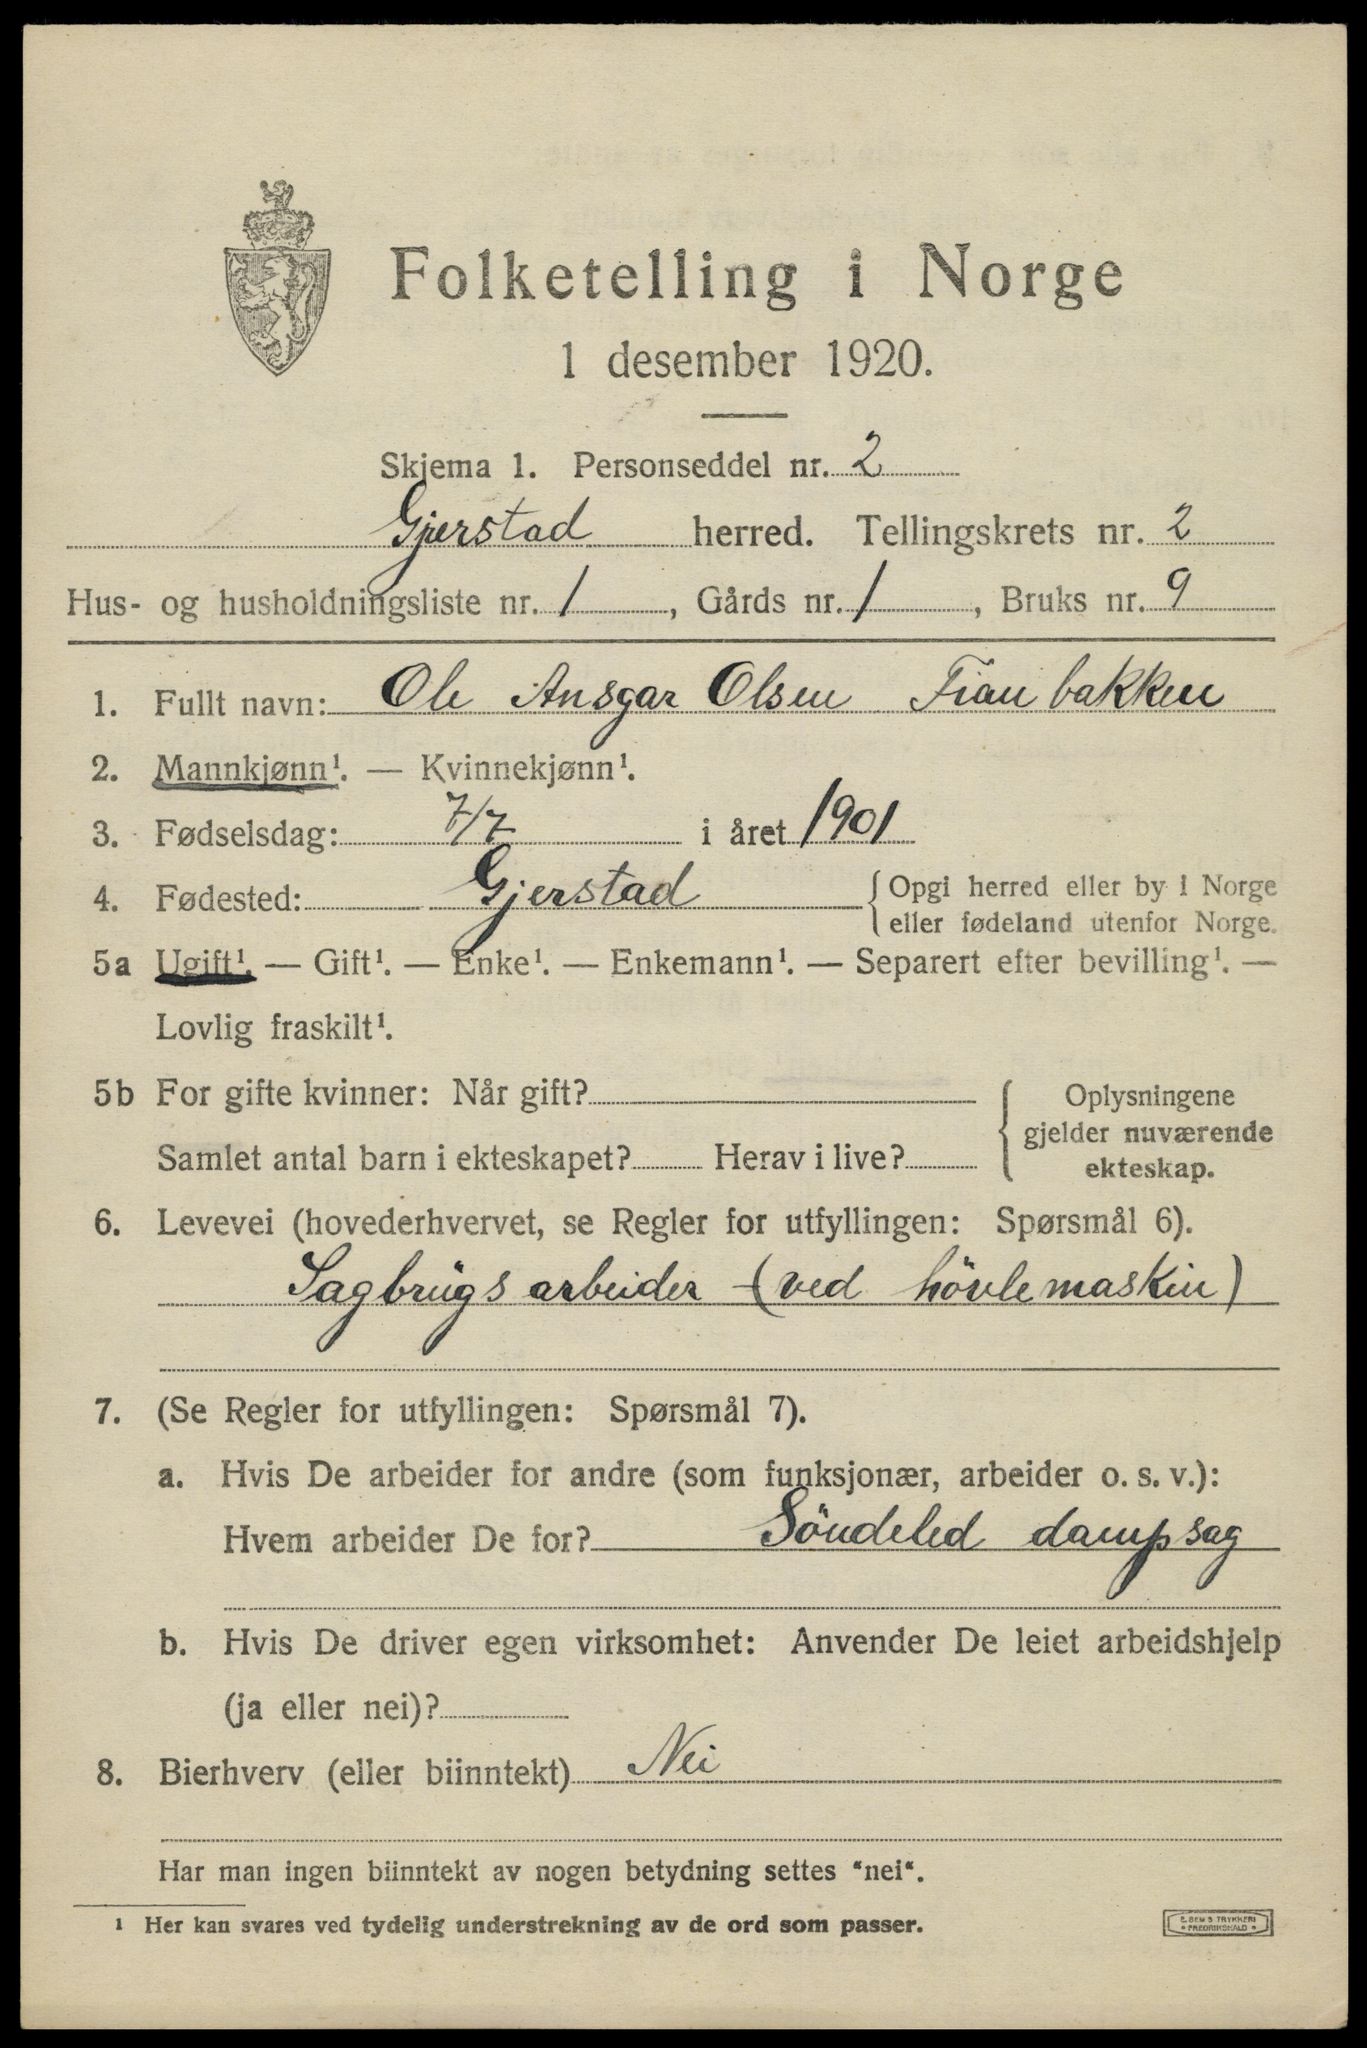 Folketelling i Norge
1 desember 1920.
Skjema 1. Personseddel nr. 2
Gjerstad herred. Tellingskrets nr. 2
Hus- og husholdningsliste nr. 1, Gårds nr. 1, Bruks nr. 9
1. Fullt navn: Ole Ansgar Olsen
2. Mannkjønn¹. — Kvinnekjønn¹.
3. Fødselsdag: 7/7 i året 1901
4. Fødested: Gjerstad {Opgi herred eller by i Norge
eller fødeland utenfor Norge.
5a Ugift¹. — Gift¹. — Enke¹. — Enkemann¹. — Separert efter bevilling¹. —
Lovlig fraskilt¹.
5b For gifte kvinner: Når gift? Oplysningene
gjelder nuværende
Samlet antal barn i ekteskapet? Herav i live? ekteskap.
6. Levevei (hovederhvervet, se Regler for utfyllingen: Spørsmål 6).
Sagbrügsarbeider - (ved hövlemaskin)
7. (Se Regler for utfyllingen: Spørsmål 7).
a. Hvis De arbeider for andre (som funksjonær, arbeider o. s. v.):
Hvem arbeider De for? Söndeled dampsag
b. Hvis De driver egen virksomhet: Anvender De leiet arbeidshjelp
(ja eller nei)?
8. Bierhverv (eller biinntekt) Nei
Har man ingen biinntekt av nogen betydning settes "nei".
1 Her kan svares ved tydelig understrekning av de ord som passer.
E. SEM'S TRYKKERI
FREDRIKSHALD